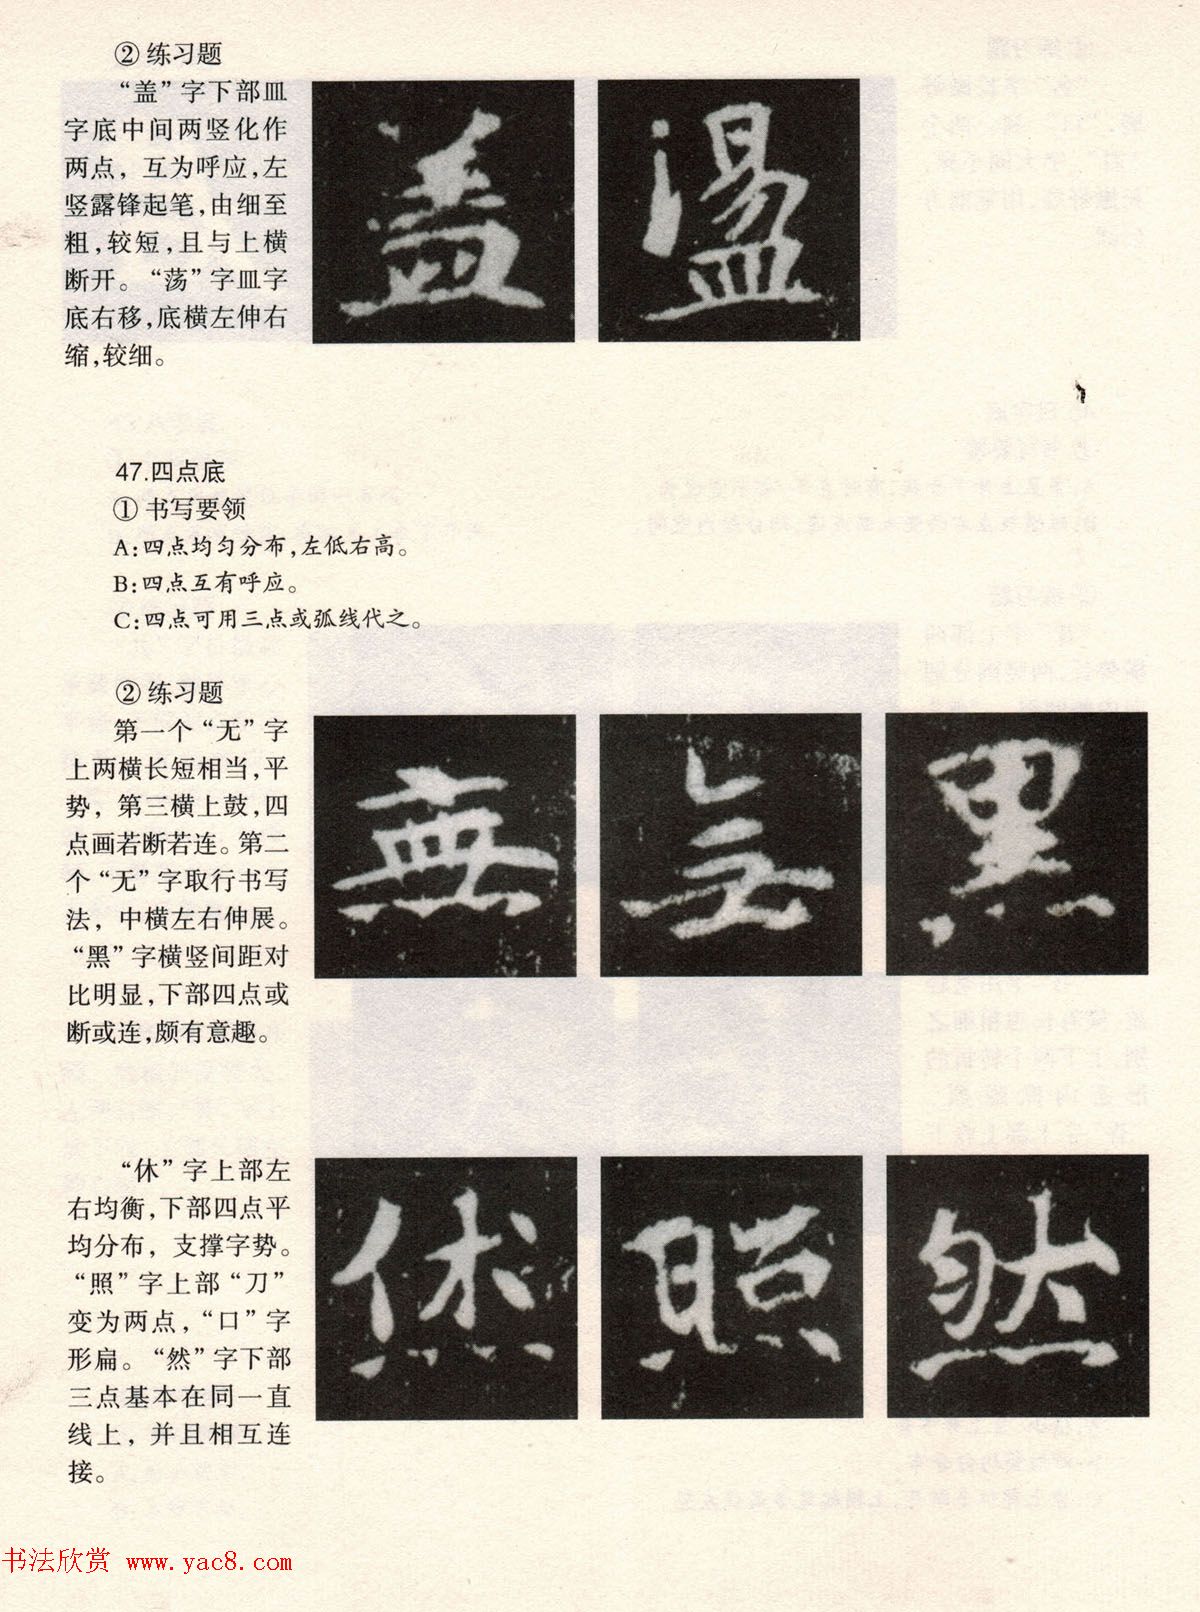 ② 练习题
“盖”字下部皿
字底中间两竖化作
两点，互为呼应，左
竖露锋起笔，由细至
粗，较短，且与上横
断开。“荡”字皿字
底右移，底横左伸右
缩，较细。
盖 盪
47.四点底
① 书写要领
A：四点均匀分布，左低右高。
B：四点互有呼应。
C：四点可用三点或弧线代之。
② 练习题
第一个“无”字
上两横长短相当，平
势，第三横上鼓，四
点画若断若连。第二
个“无”字取行书写
法，中横左右伸展。
“黑”字横竖间距对
比明显，下部四点或
断或连，颇有意趣。
無 無 黑
“休”字上部左
右均衡，下部四点平
均分布，支撑字势。
“照”字上部“刀”
变为两点，“口”字
形扁。“然”字下部
三点基本在同一直
线上，并且相互连
接。
照 然
书法欣赏 www.yac8.com